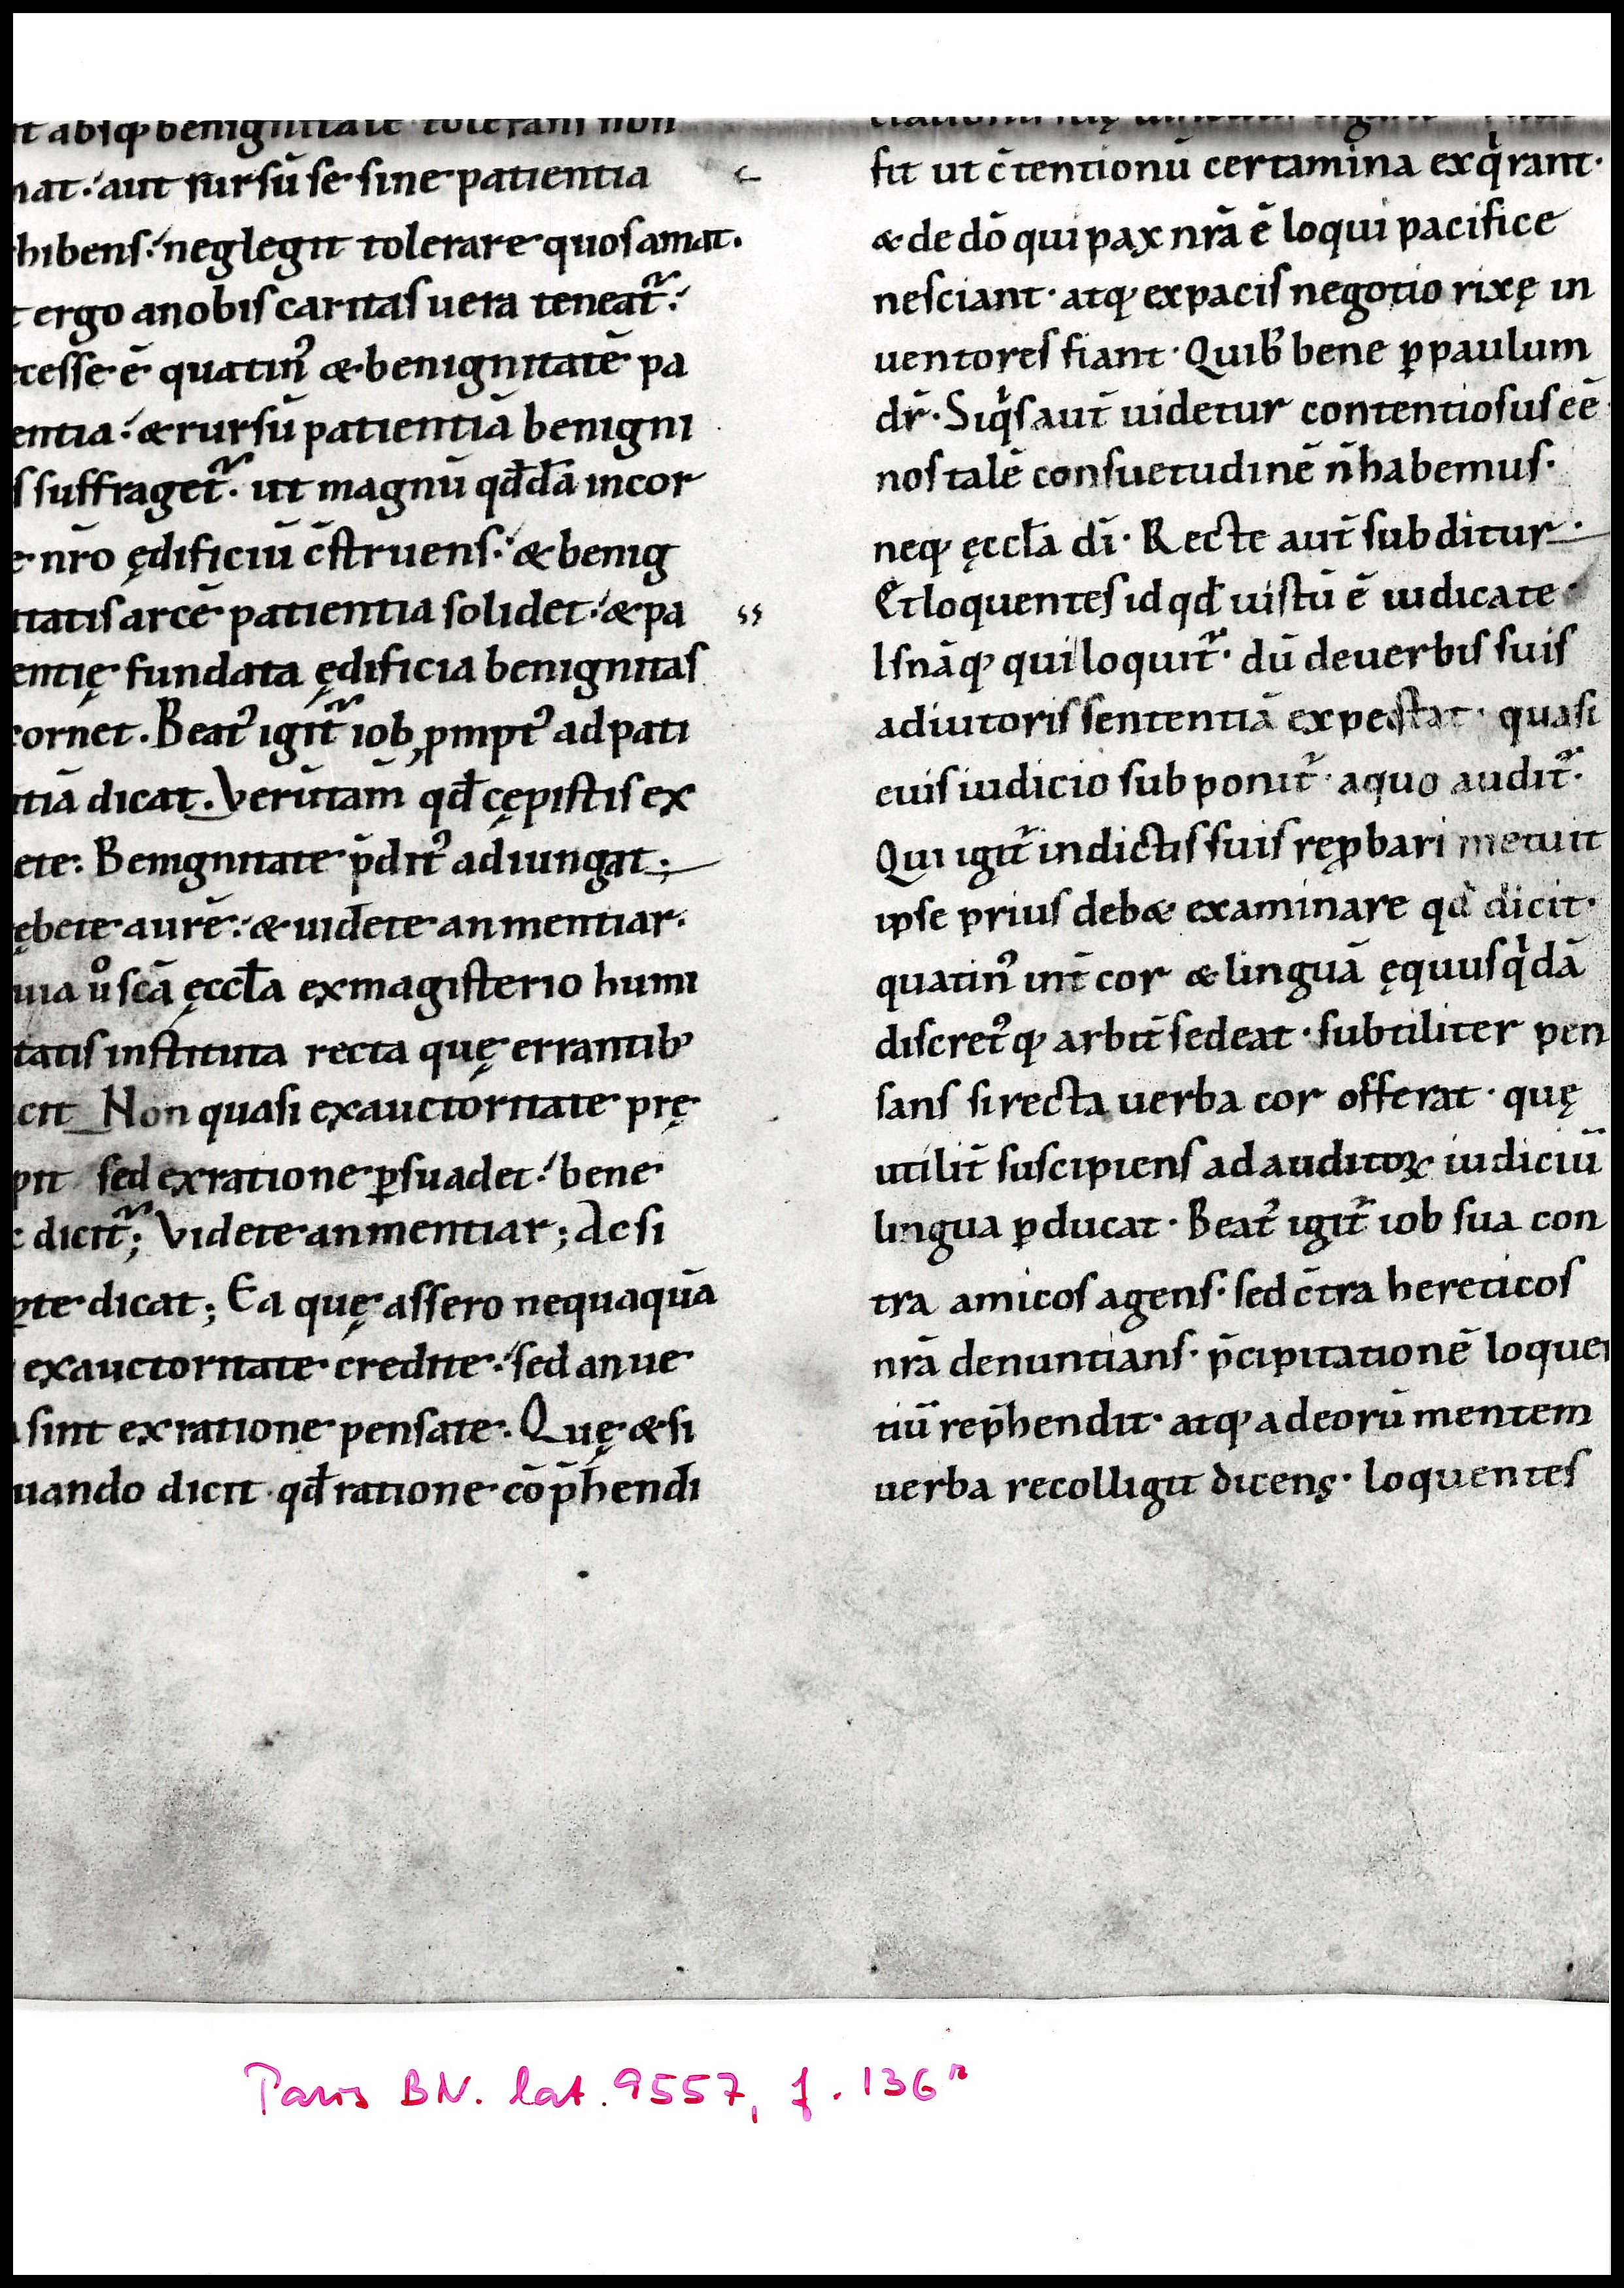 abiq; benignitate tolerans non
nat. aut rursū se sine patientia
hibens. neglegit tolerare quos amat.
ergo a nobis caritas uera teneat᷑.
cesse ē quatin᷒ & benignitatē pa
entia. & rursū patientiā benigni
s suffraget᷑. ut magnū qđdā in cor
e nr̄o ędificiū c̄struens. & benig
tatis arcē patientia solidet. & pa
entię fundata ędificia benignitas
ornet. Beat᷒ igit᷑ iob, ꝓmpt᷒ ad pati
tiā dicat. Verūtam̄ qđ cępistis ex
ete. Benignitate p̄dit᷒ adiungat;
ębete aurē. & uidete an mentiar.
uia uͦ sc̄a ęccl̄a ex magisterio humi
tatis instituta recta quę errantib;
cit Non quasi ex auctoritate prę
pit sed ex ratione ꝑsuadet. bene
dicit᷑; Videte an mentiar; Ac si
ꝑte dicat; Ea quę assero nequaquā
ex auctoritate credite. sed an ue
sint ex ratione pensate. Quę & si
uando dicit qđ ratione cōp̄hendi
fit ut c̄tentionū certamina exqͥrant.
& de dō qui pax nr̄a ē loqui pacifice
nesciant. atq; ex pacis negotio rixę in
uentores fiant. Quib; bene ꝑ paulum
dr̄. Siqͥs aut̄ uidetur contentiosus eē
nos talē consuetudinē n̄ habemus.
neq; ęccl̄a dī. Recte aut̄ subditur
Et loquentes id qđ uistū ē iudicate
Is nāq; qui loquit᷑. dū de uerbis suis
adiutoris sententiā expectat. quasi
euis iudicio sub ponit᷑. a quo audit᷑.
Qui igit᷑ in dictis suis ręꝓbari metuit
ipse prius deb& examinare qđ dicit.
quatin᷒ int̄ cor & linguā ęquus qͥdā
discret᷒q; arbit̄ sedeat. subtiliter pen
sans si recta uerba cor offerat. quę
utilit̄ suscipiens ad auditoꝝ iudiciū
lingua ꝓducat. Beat᷒ igit᷑ iob sua con
tra amicos agens. sed c̄tra hereticos
nr̄a denuntians. p̄cipitationē loquen
tiū rep̄hendit. atq; ad eorū mentem
uerba recolligit dicens. loquentes
Paris BN. lat. 9557, f. 136r